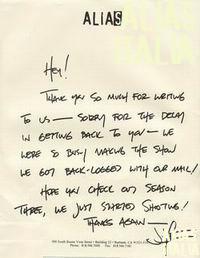 ALIAS
ALIAS
ITALIA
Hey!
Thank you so much for writing
to us — sorry for the delay
in getting back to you — we
were so busy making the show
we got back-logged with our mail!
Hope you check out season
three, we just started shooting!
Thanks again —
500 South Buena Vista Street • Building 23 • Burbank, CA 91521
ALIAS
ITALIA